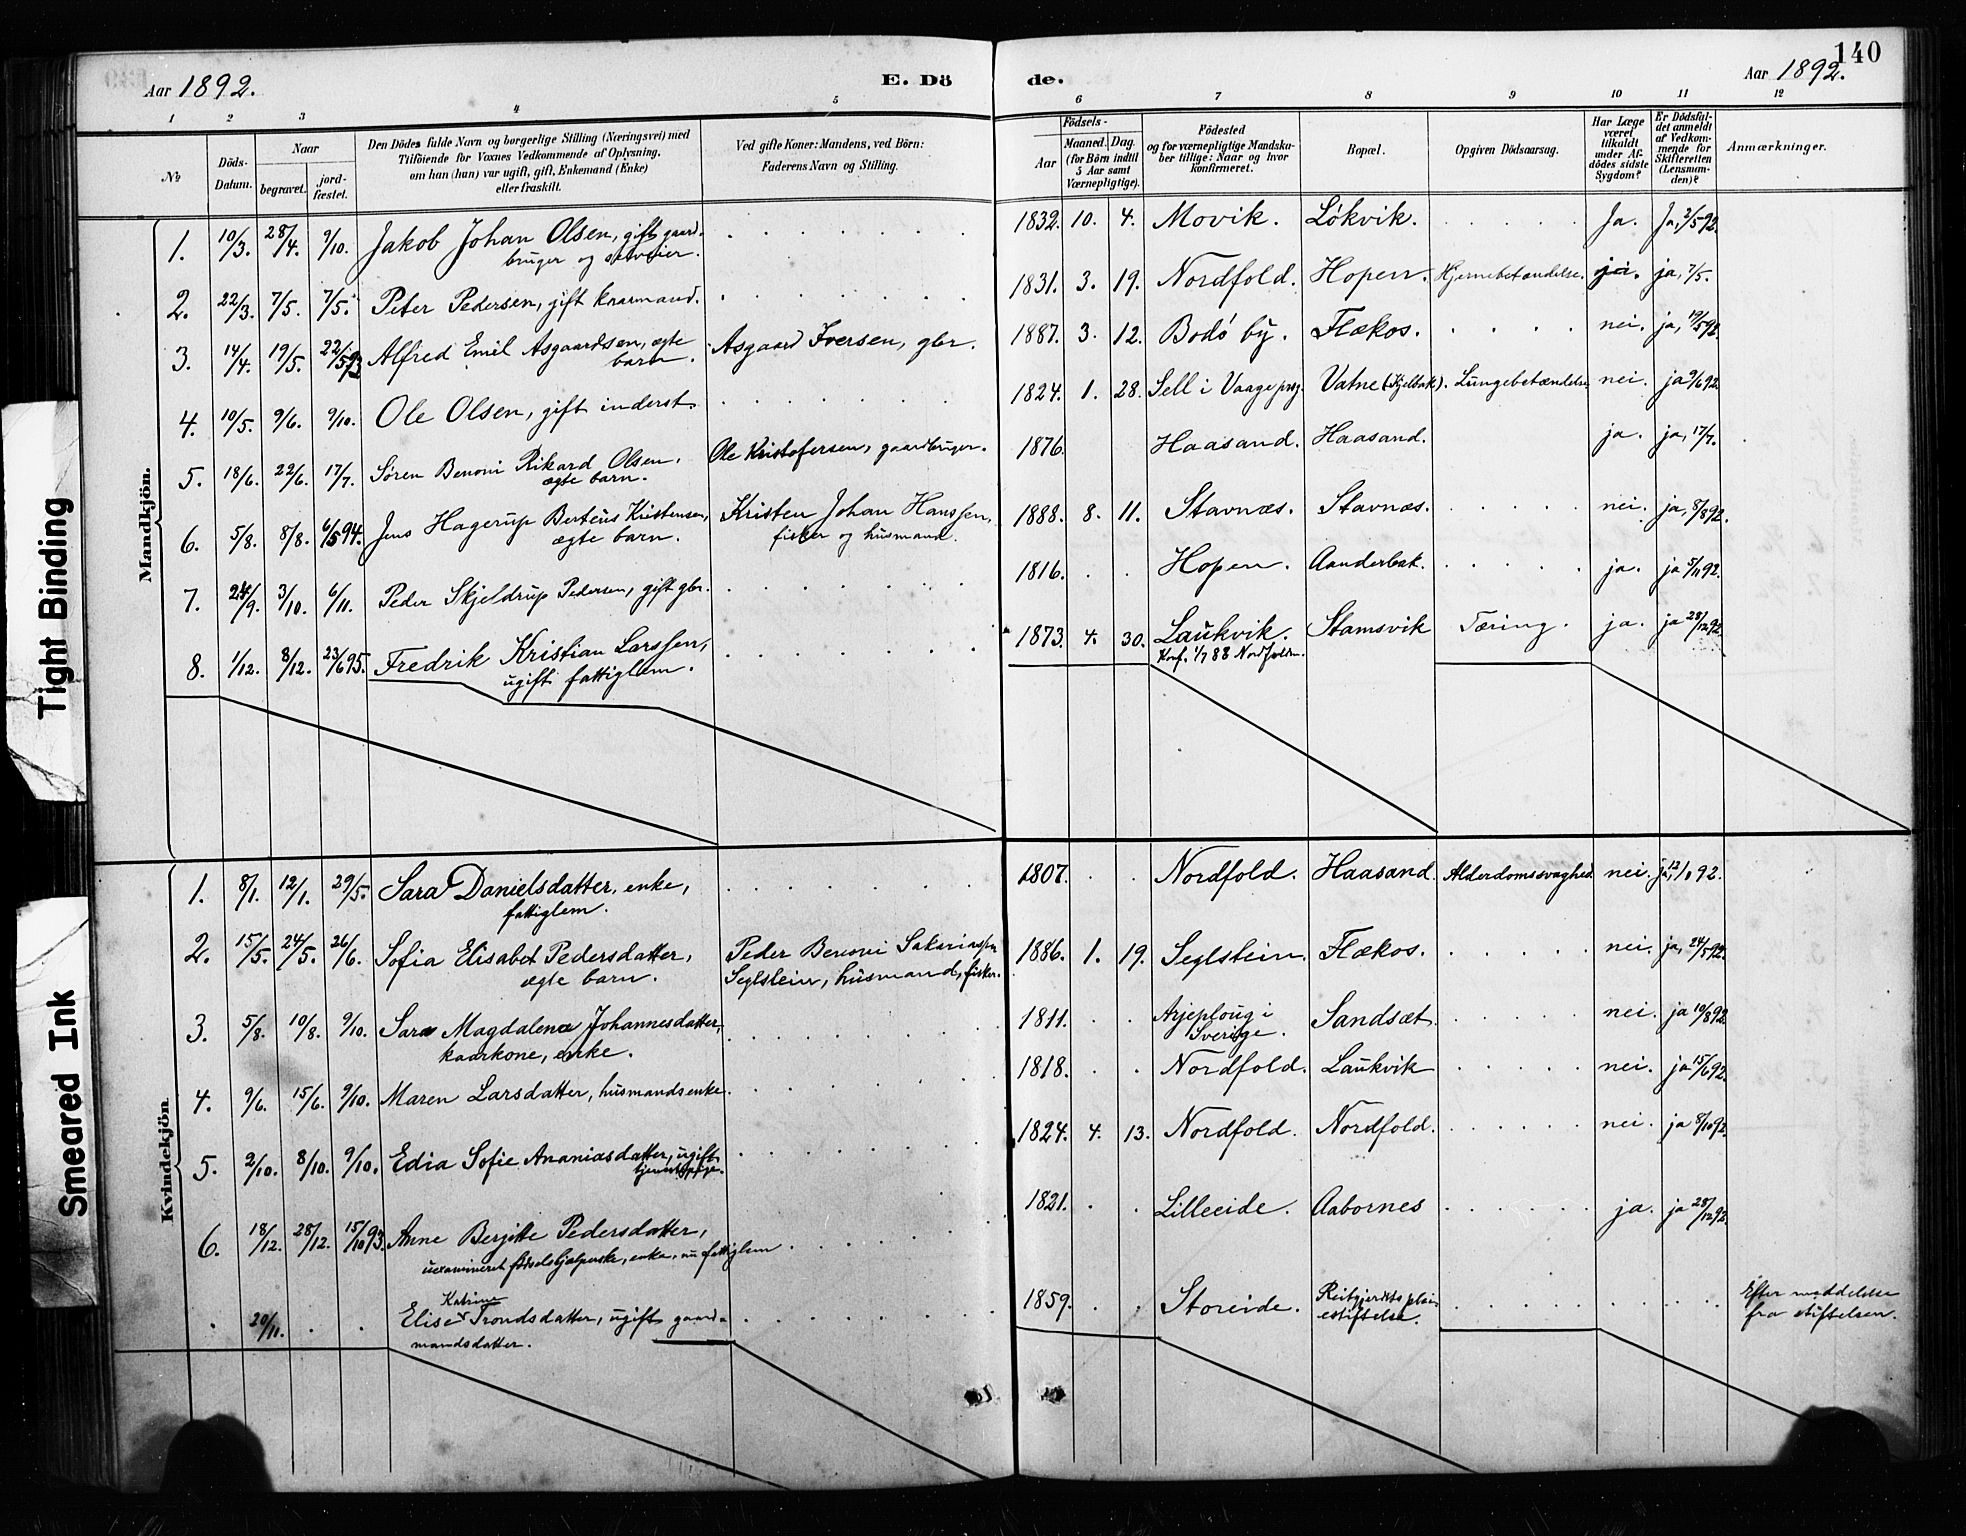 140
Aar 1892.
E. Dö
de.
Aar 1892.
1 2 3 4 5 6 7 8 9 10 11 12
No
Döds-Datum.
Naar
begravet.
jord-fæstet.
Den Dödes fulde Navn og borgerlige Stilling (Næringsvei) med
Tilföiende for Voxnes Vedkommende af Oplysning,
om han (hun) var ugift, gift, Enkemand (Enke)
eller fraskilt.
Ved gifte Koner: Mandens, ved Börn:
Faderens Navn og Stilling.
Födsels-
Aar
Maaned. Dag.
(for Börn indtil
5 Aar samt
Værnepligtige).
Födested
og for værnepligtige Mandska-
ber tillige: Naar og hvor
konfirmeret.
Bopæl.
Opgiven Dödsaarsag.
Har Læge
været
tilkaldt
under Af-
dödes sidste
Sygdom?
Er Dödsfal-
det anmeldt
af Vedkom-
mende for
Skifteretten
(Lensman-
den)?
Anmærkninger.
Mandkjön.
1. 10/3. 28/4. 9/10. Jakob Johan Olsen, gift gaard-
bruger og selveier.
1832. 10. 4. Movik. Løkvik. Ja. Ja, 2/5 92.
2. 22/3. 7/5. 7/5. Peter Pedersen, gift kaarmand.
1831. 3. 19. Nordfold. Hopen. Hjernebetændelse. ja, 7/5.
3. 14/4. 19/5. 22/5 93 Alfred Emil Asgaardsen, ægte
barn.
Asgaard Iversen, gbr. 1887. 3. 12. Bodø by. Flækos. nei. ja, 19/5 92.
4. 10/5. 9/6. 9/10. Ole Olsen, gift inderst.
1824. 1. 28. Sell i Vaage prg. Vatne (Kjelbak). Lungebetændelse nei. ja 9/6 92.
5. 18/6. 22/6. 17/7. Søren Benoni Rikard Olsen.
ægte barn.
Ole Kristofersen, gaardbruger. 1876. Haasand. Haasand. ja. ja, 17/7.
6. 5/8. 8/8. 6/5 94. Jens Hagerup Berteus Kristensen,
ægte barn.
Kristen Johan Hanssen,
fisker og husmand.
1888. 8. 11. Stavnæs. Stavnæs. nei. ja, 8/8 92.
7. 24/9. 3/10. 6/11. Peder Skjeldrup Pedersen, gift gbr.
1816. Hopen. Aanderbak. ja. ja 5/11 92.
8. 1/12. 8/12. 23/6 95. Fredrik Kristian Larssen,
ugift fattiglem.
1873. 4. 30. Laukvik. Stamsvik Tæring. ja. ja 28/12 92.
Konf. 1/7 88 Nordfolden.
Kvindekjön.
1. 8/1. 12/1. 29/5. Sara Danielsdatter, enke,
fattiglem.
1807. Nordfold. Haasand. Alderdomssvaghed nei. ja, 12/1 92.
2. 15/5. 24/5. 26/6. Sofia Elisabet Pedersdatter,
ægte barn.
Peder Benoni Sakariassen
Seglstein, husmand, fisker.
1886. 1. 19. Seglstein. Flækos. nei. ja, 24/5 92.
3. 5/8. 10/8. 9/10. Sara Magdalena Johannesdatter,
kaarkone, enke.
1811. Arjeploug i
Sverige. Sandsæt. nei. ja 10/8 92.
4. 9/6. 15/6. 9/10. Maren Larsdatter, husmandsenke.
1818. Nordfold. Laukvik nei. ja 15/6 92.
5. 2/10. 8/10. 9/10. Edia Sofie Ananiasdatter, ugift
tjenestepige.
1824. 4. 13. Nordfold. Nordfold. nei. ja 8/10 92.
6. 18/12. 28/12. 15/10 93. Anne Berjitte Pedersdatter,
uexamineret fødselshjælperske, enke, nu fattiglem
1821. Lilleeide. Aabornes ja. ja 28/12 92.
20/11. Elise Katrine Trondsdatter, ugift gaard-
mandsdatter.
1859. Storeide. Reitgjerdets plei-
estiftelse.
Efter meddelelse
fra stiftelsen.
Tight Binding
Smeared Ink